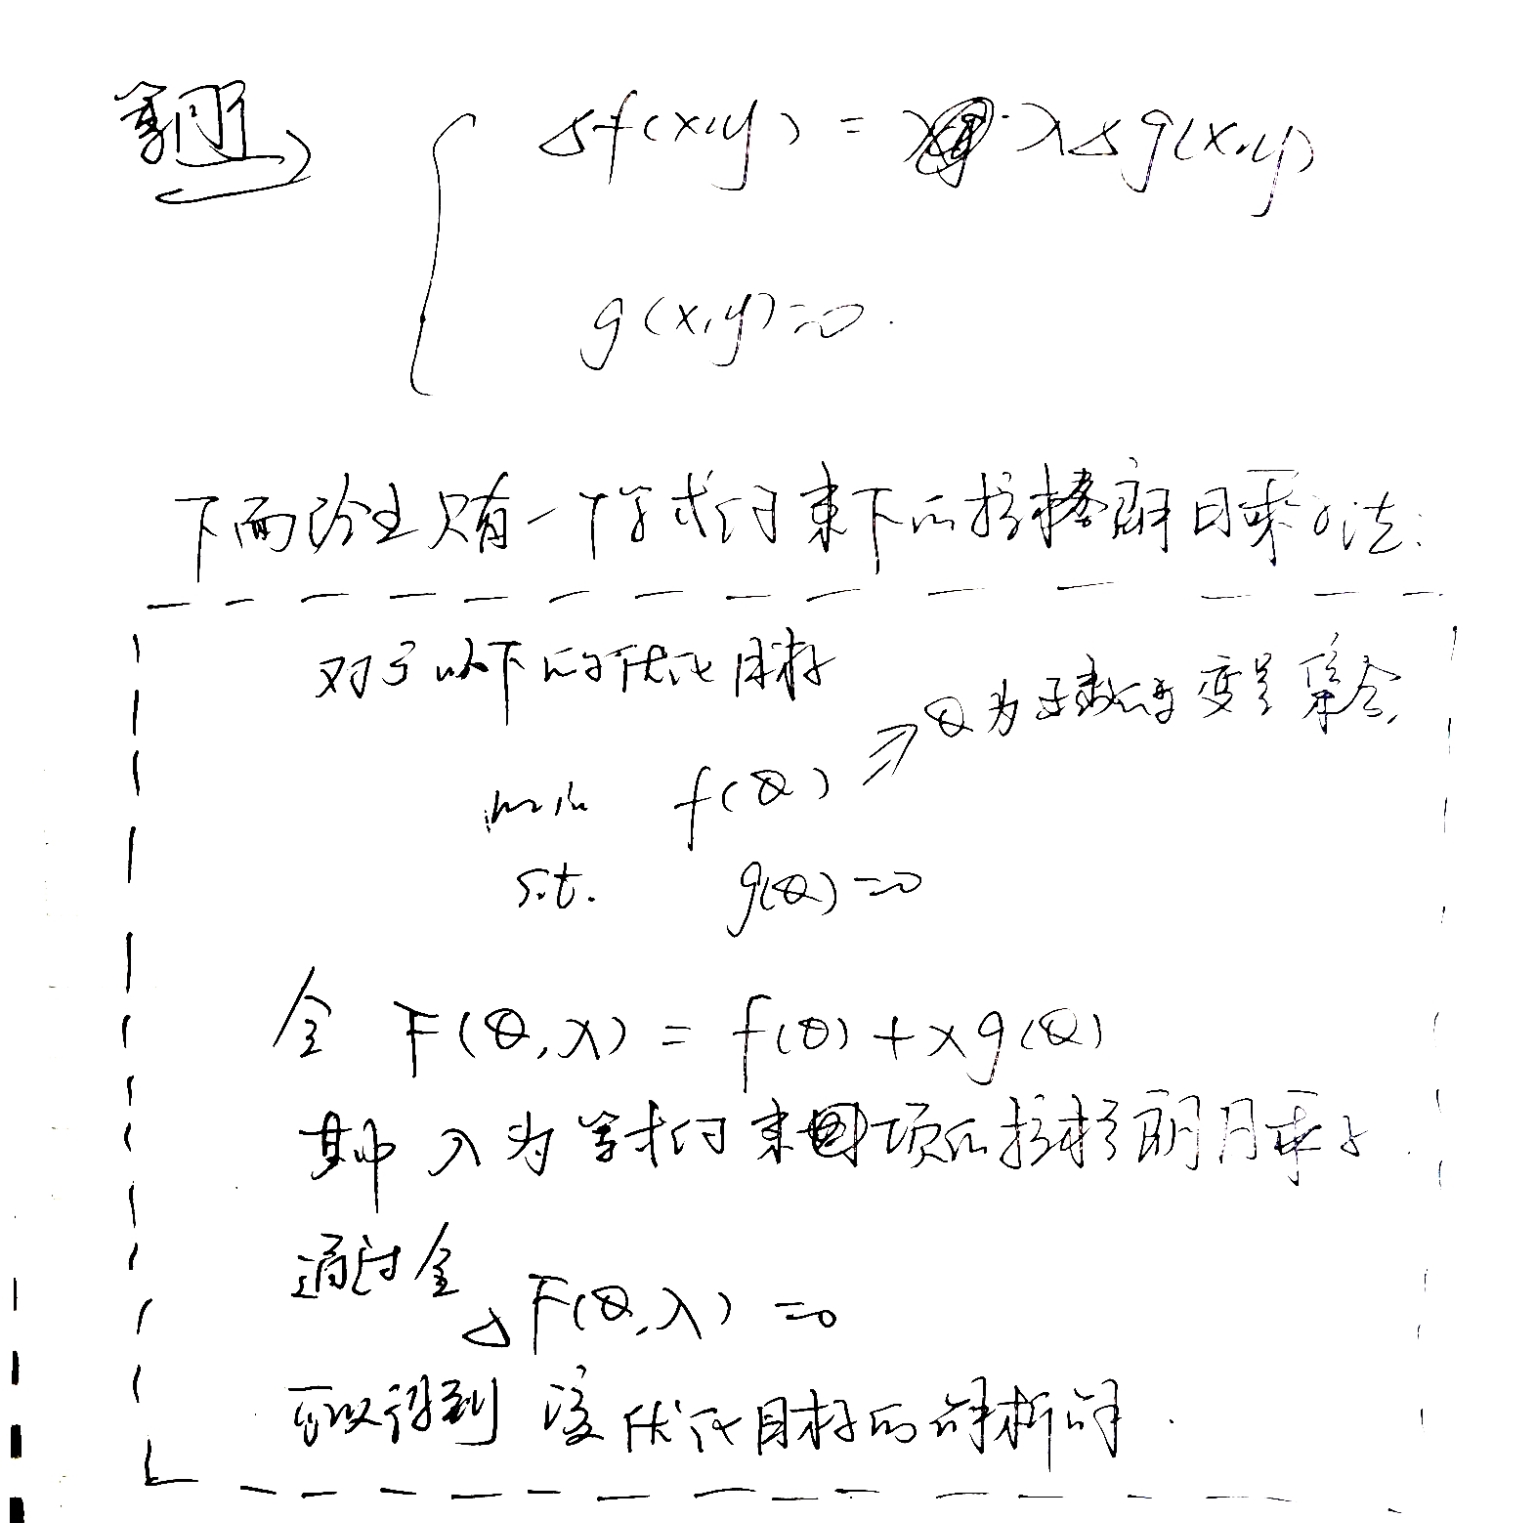 等同于 Δf(x,y) = λΔg(x,y)
g(x,y)=0.
下面给出只有一个等式约束下的拉格朗日乘子法:
对于以下的优化目标
θ为函数的变量集合
min f(θ)
s.t. g(θ)=0
令 F(θ,λ) = f(θ)+λg(θ)
其中 λ为等式约束项的拉格朗日乘子
通过令
ΔF(θ,λ)=0
可以得到 该优化目标的解析解.